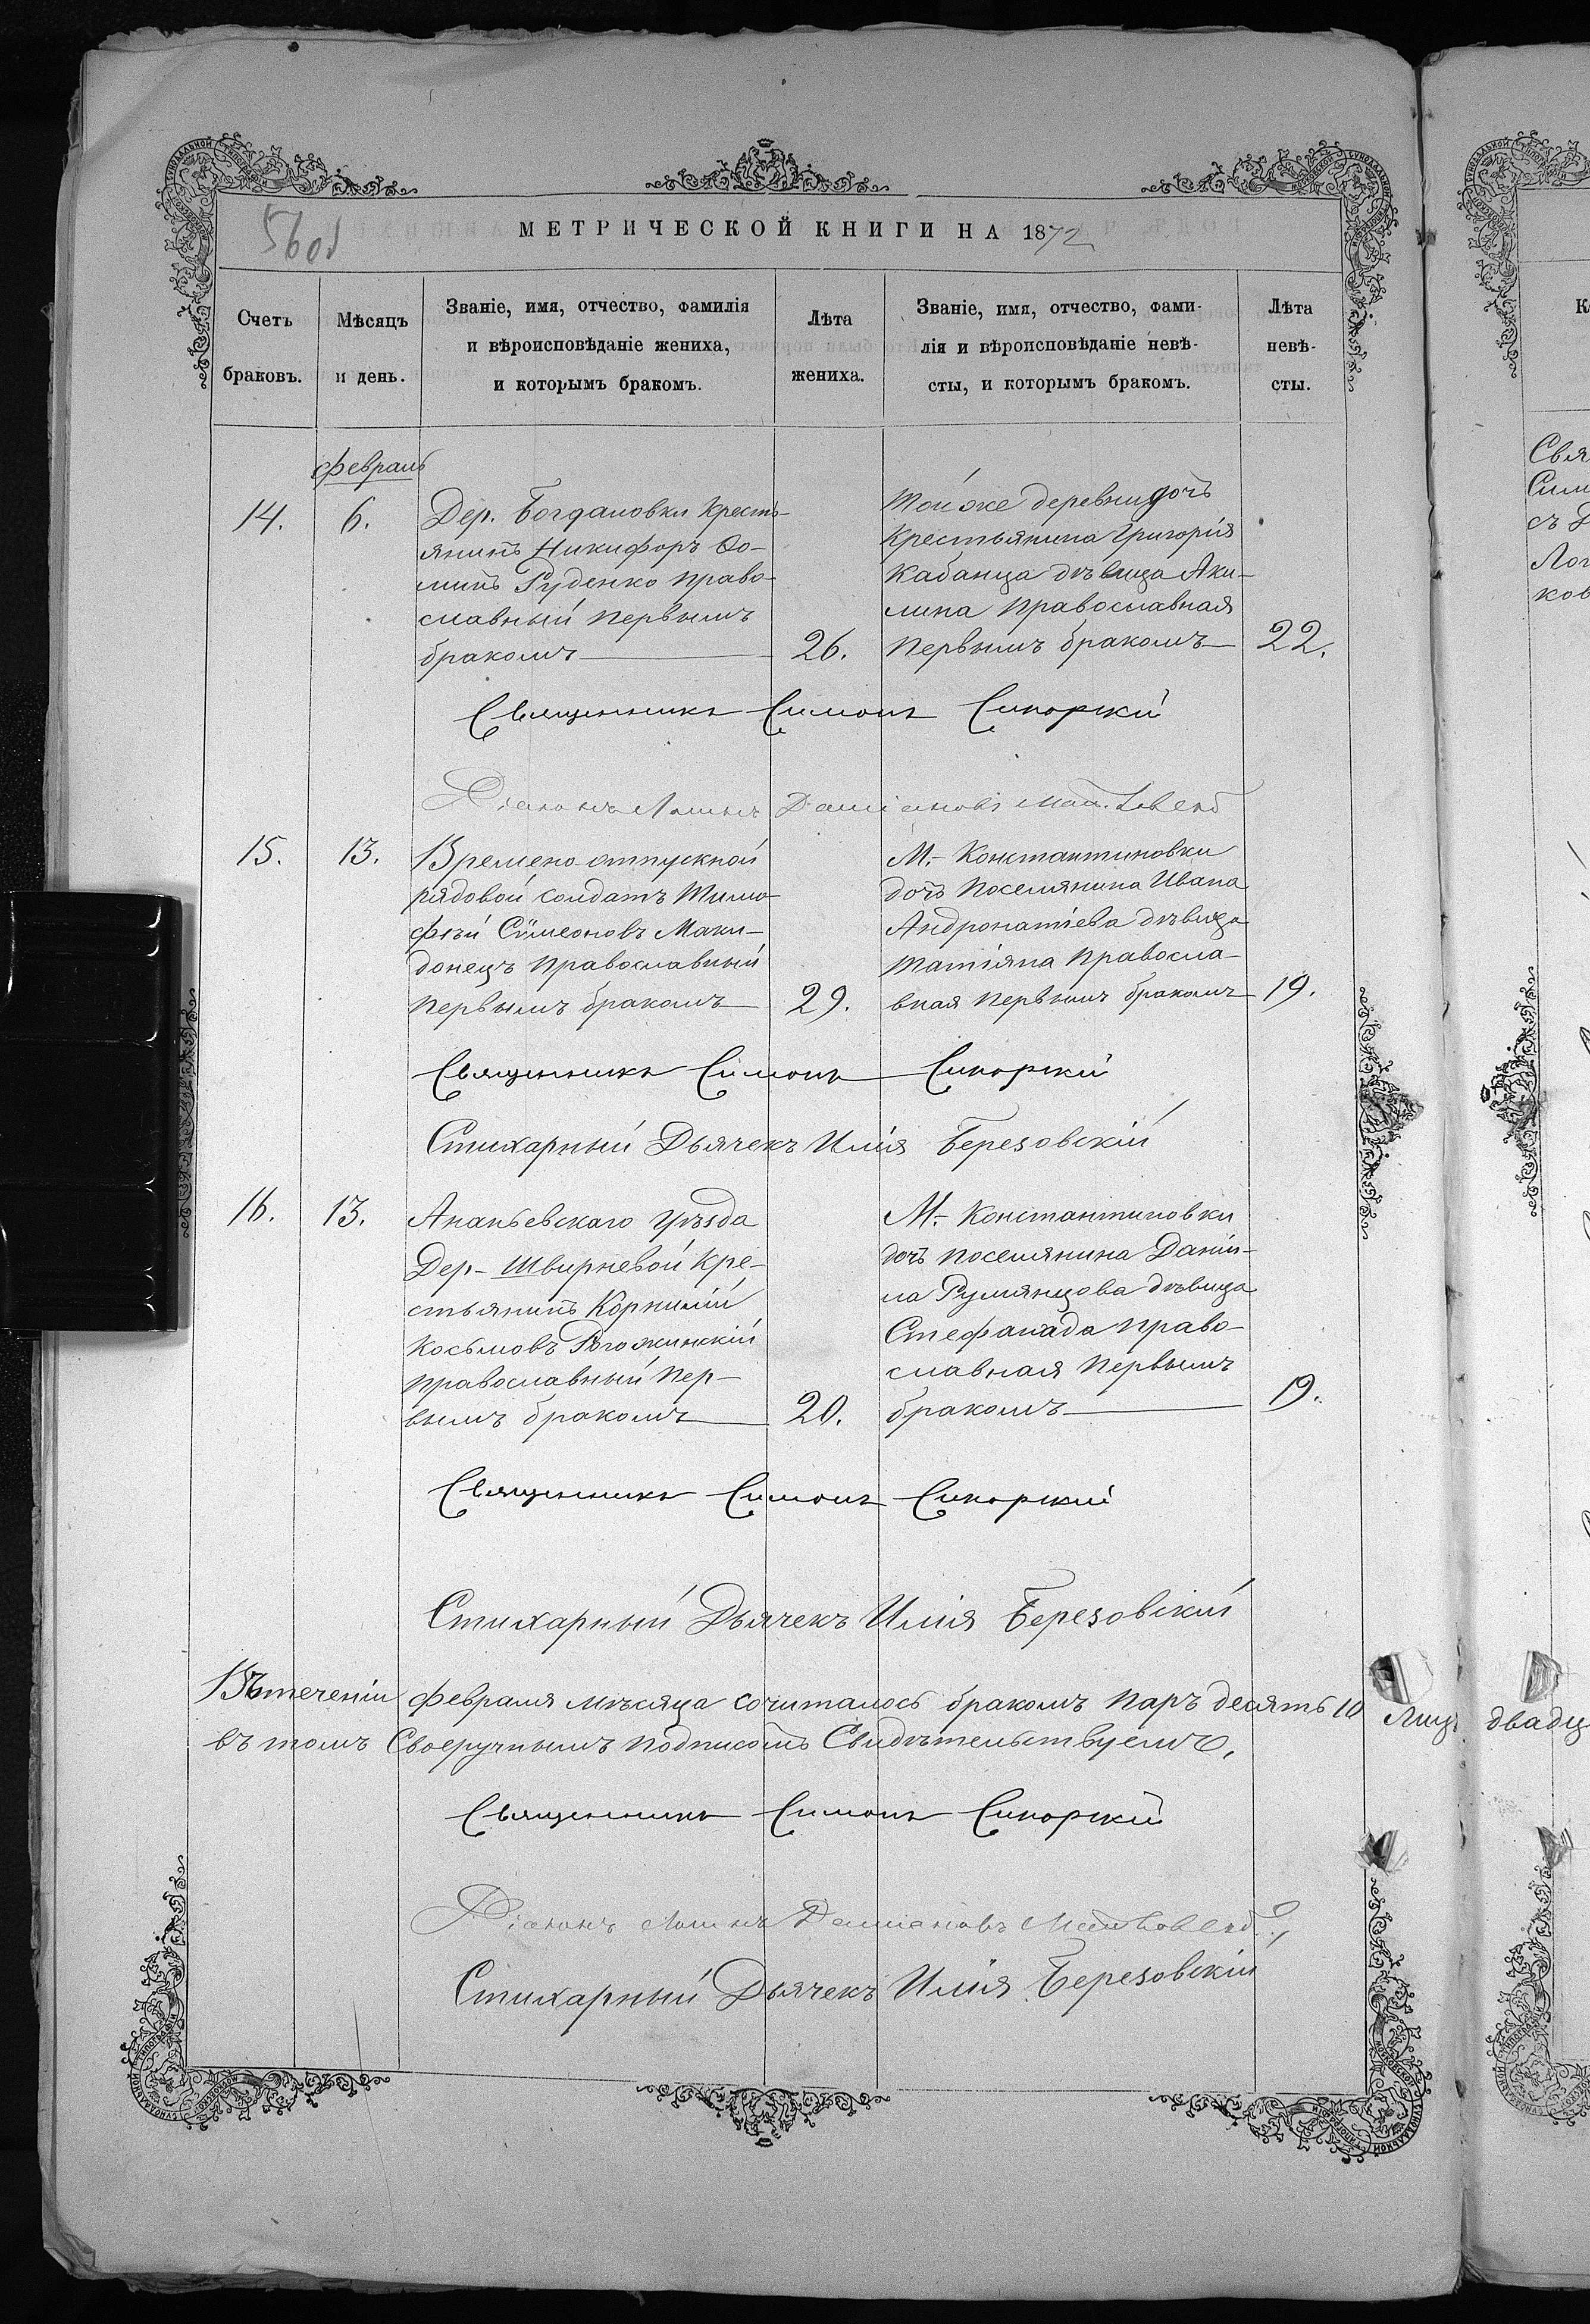 560д
МЕТРИЧЕСКОЙ КНИГИ НА 1872
Счетъ браковъ.
Мѣсяцъ и день.
Званіе, имя, отчество, фамилія
и вѣроисповѣданіе жениха,
и которымъ бракомъ.
Лѣта жениха.
Званіе, имя, отчество, фами-
лія и вѣроисповѣданіе невѣ-
сты, и которымъ бракомъ.
Лѣта невѣ-
сты.
февраль
14.
6.
Дер. Богдановки кресть-
янинъ Никифоръ Ѳо-
минъ Руденко право-
славный первымъ
бракомъ
26.
Той же деревни дочь
крестьянина Григорія
Кабанца дѣвица Аки-
лина православная
первымъ бракомъ
22.
Священникъ Симонъ Сикорскій
Діаконъ Даміановъ
15.
13.
Времено-отпускной
рядовой солдатъ Тимо-
фѣй Сѵмеоновъ Маки-
донецъ православный
первымъ бракомъ
29.
М.- Константиновки
дочь поселянина Ивана
Андронатіева дѣвица
Татіяна правосла-
вная первымъ бракомъ
19.
Священникъ Симонъ Сикорскій
Стихарный Дьячекъ Илія Березовскій
16.
13.
Ананьевскаго уѣзда
Дер- Швирневой кре-
стьянинъ Корнилій
Косьмовъ Рогожинскій
православный пер-
вымъ бракомъ
20.
М.- Константиновки
дочь поселянина Даніи-
ла Румянцова дѣвица
Стефанида право-
славная первымъ
бракомъ
19.
Священникъ Симонъ Сикорскій
Стихарный Дьячекъ Илія Березовскій
Въ теченіи февраля мѣсяца сочиталось бракомъ паръ десять 10 лицъ двадц
въ томъ Своеручнымъ подписомъ Свидѣтельствуемъ.
Священникъ Симонъ Сикорскій
Діаконъ Даміановъ
Стихарный Дьячекъ Илія Березовскій